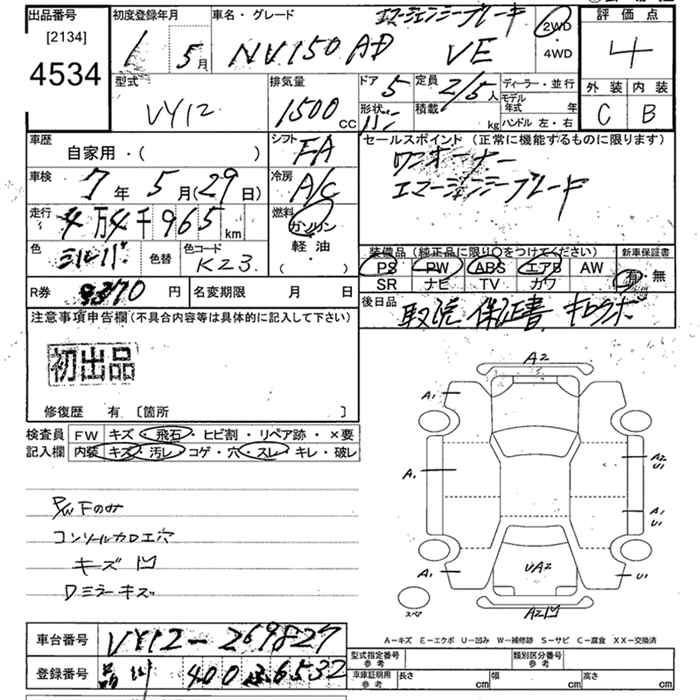 出品番号 初度登録年月 車名・グレード エマージェンシーブレーキ 2WD 評価点
[2134] 1 5月 NV150 AD VE ・4WD 4
4534 型式 排気量 ドア 5 定員 2/5人 ディーラー・並行 外装 内装
VY12 1500cc 形状 バン 積載 kg モデル年式 年 C B
ハンドル 左・右
車歴 シフト セールスポイント (正常に機能するものに限ります)
自家用・( ) FA ワンオーナー
車検 7年5月(29日) 冷房 A/C エマージェンシーブレーキ
走行 4万4千965km 燃料 ガソリン
色 シルバー 色替 色コード K23. 軽油 ・( ) 装備品(純正品に限り○をつけてください) 新車保証書
PS PW ABS エアB AW 有・無
SR ナビ TV カワ
R券 円 名変期限 月 日 後日品 取説 保証書
注意事項申告欄(不具合内容等は具体的に記入して下さい)
初出品
修復歴 有 〔箇所 〕
検査員記入欄 FW キズ・飛石・ヒビ割・リペア跡・×要
内装 キズ・汚レ・コゲ・穴・スレ・キレ・破レ
A2
A1
A2
U1
A1
A1
U1
A1 UA2 U1
スペア A2凹
P/WFのみ
コンソールカロエ穴
キズ 凹
Dミラーキズ
A−キズ E−エクボ U−凹み W−補修跡 S−サビ C−腐食 XX−交換済
車台番号 VY12-269827 型式指定番号 参考 類別区分番号 参考
登録番号 400 6532 車庫証明用 参考 長さ cm 幅 cm 高さ cm